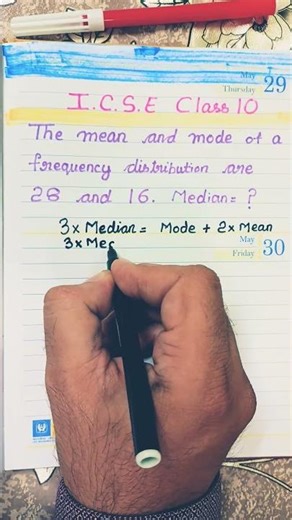 May
Thursday 29
I.C.S.E Class 10
The mean and mode of a
frequency distribution are
28 and 16. Median = ?
3 x Median = Mode + 2 x Mean
3 x Mec
May
Friday 30